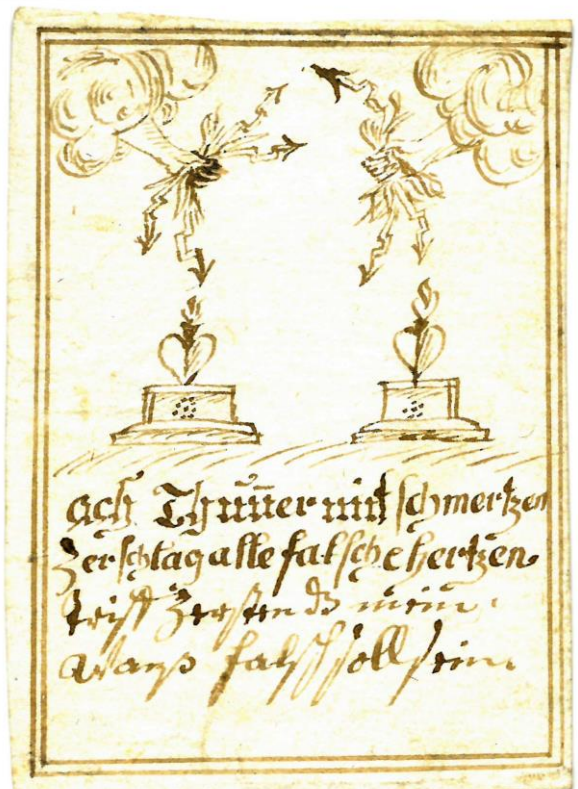 Ach Thuñer mit schmertzen
Zerschlag alle falsche hertzen.
triff Zersten dz mein.
Wanß falsch soll sein.